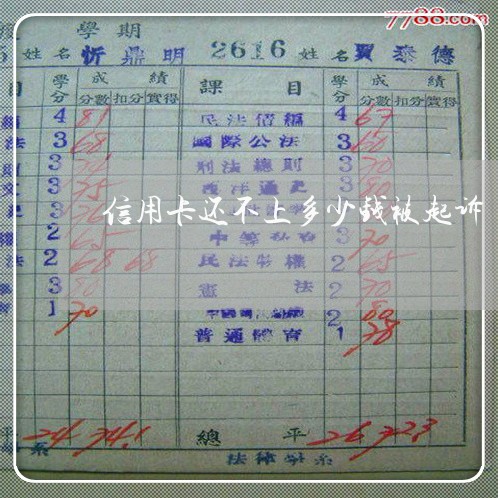 7788.com
學期
姓名 忻鼎明 2616 姓名 賈泰德
目 學分 成績 課目 學分 成績
分數 扣分 實得 分數 扣分 實得
4 81 民法債編 4 67
法 3 68 國際公法 3 60
則 3 刑法總則 3 70
文 3 75 西洋通史 3 80
史 3 3
信用卡还不上多少钱被起诉
權 2 65 3 70
法 2 68 68 民法物權 2 65
3 80 憲法 2 70
育 1 70 2 80
普通體育 1 78
平 24 74.1 總平 26 72.3
系 法律學系